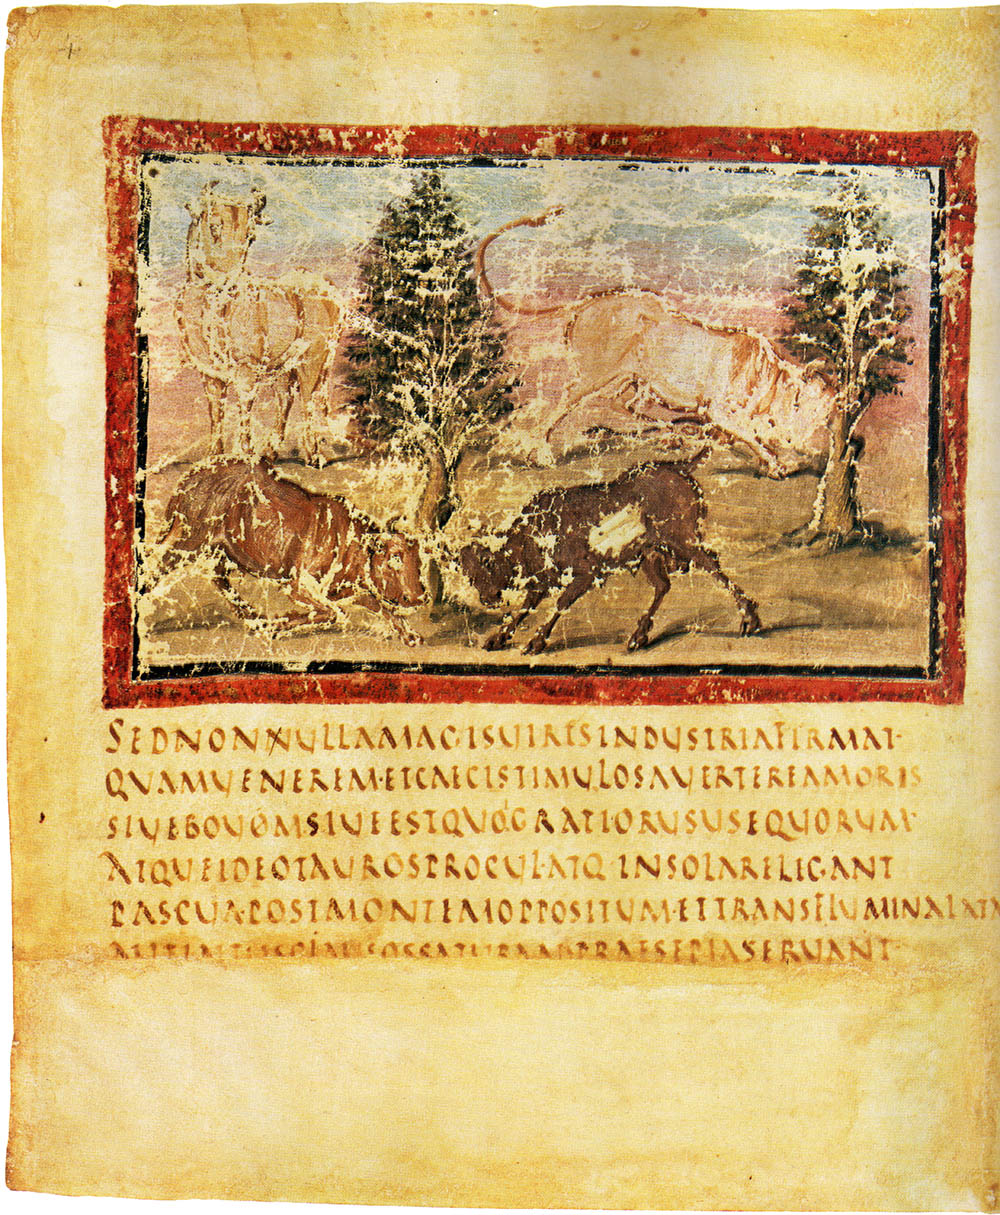 SEDNONNULLAMAGISUIRESINDUSTRIAFIRMAT·
QUAMUENEREM·ETCAECISTIMULOSAUERTEREAMORIS
SIUEBOUOMSIUEESTQUOIGRATIORUSUSEQUORUM·
ATQUEIDEOTAUROSPROCUL·ATQ·INSOLARELIGANT
PASCUA·POSTMONTEMOPPOSITUM·ETTRANSFLUMINALATA
AUTINTUSCLAUSOSSATURAADPRAESEPIASERUANT·